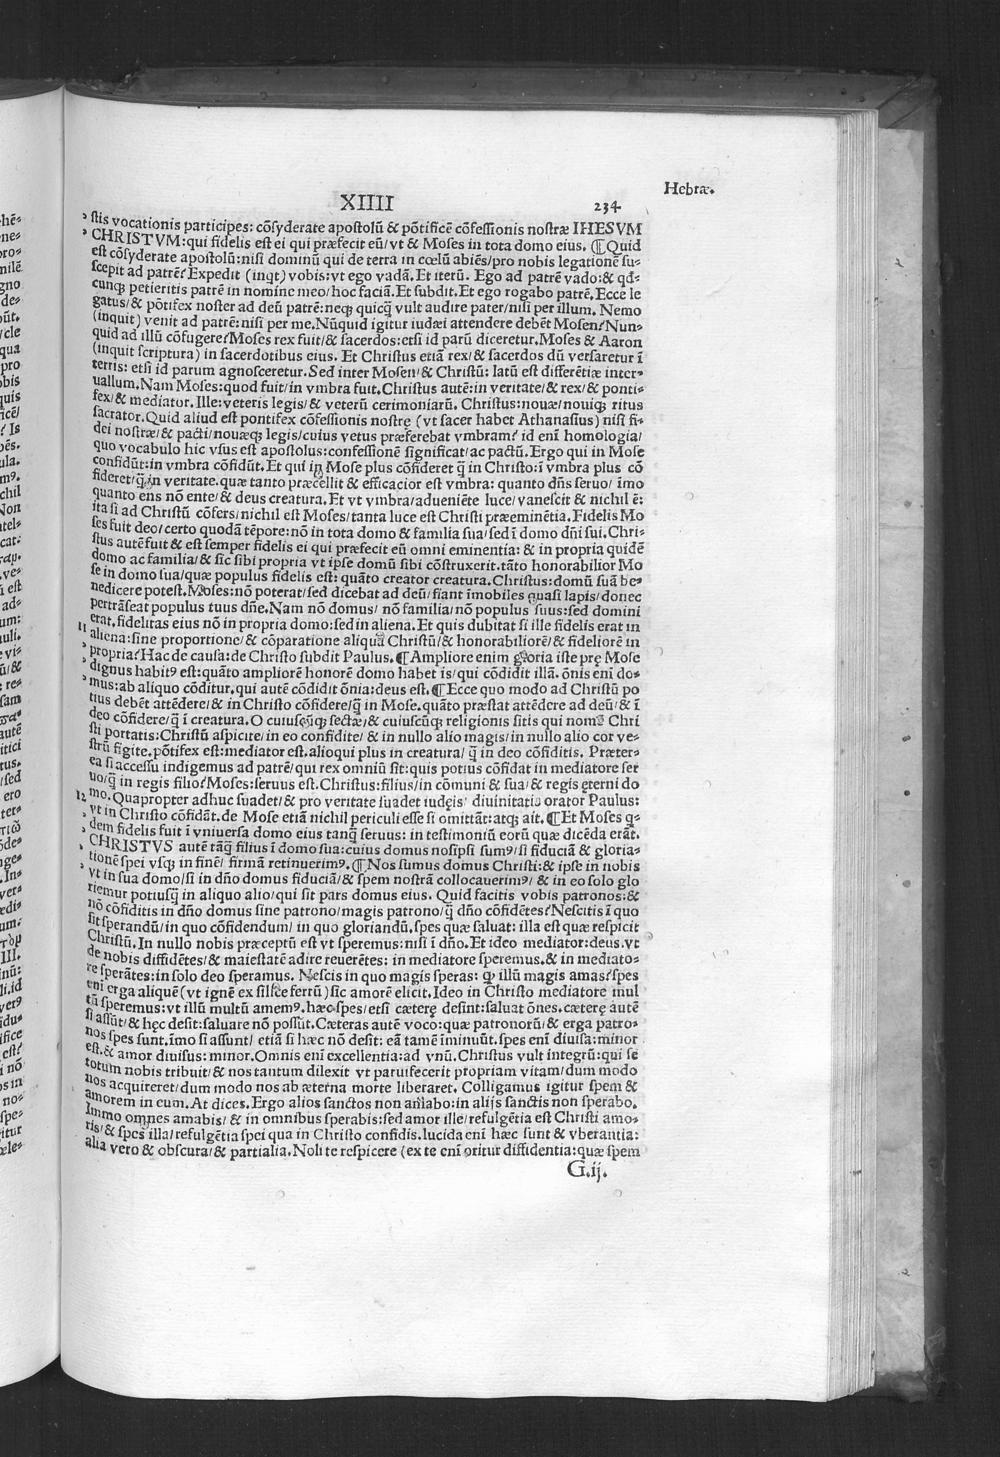 Hebræ.
XIIII 234
stis vocationis participes: cõsyderate apostolũ & põtificẽ cõfessionis nostræ IHESVM
CHRISTVM: qui fidelis est ei qui præfecit eũ/ vt & Moses in tota domo eius. ¶ Quid
est cõsyderate apostolũ: nisi dominũ qui de terra in cœlũ abiẽs/ pro nobis legationẽ su-
scepit ad patrẽ? Expedit (inqt) vobis: vt ego vadã. Et iterũ. Ego ad patrẽ vado: & qd-
cunqꝫ petieritis patrẽ in nomine meo/ hoc faciã. Et subdit. Et ego rogabo patrẽ. Ecce le
gatus/ & põtifex noster ad deũ patrẽ: neqꝫ quicq̃ vult audire pater/ nisi per illum. Nemo
(inquit) venit ad patrẽ: nisi per me. Nũquid igitur iudæi attendere debẽt Mosen? Nun-
quid ad illũ cõfugere? Moses rex fuit/ & sacerdos: etsi id parũ diceretur. Moses & Aaron
(inquit scriptura) in sacerdotibus eius. Et Christus etiã rex/ & sacerdos dũ versaretur ĩ
terris: etsi id parum agnosceretur. Sed inter Mosen/ & Christũ: latũ est differẽtiæ inter-
uallum. Nam Moses: quod fuit/ in vmbra fuit. Christus autẽ: in veritate/ & rex/ & ponti-
fex/ & mediator. Ille: veteris legis/ & veterũ cerimoniarũ. Christus: nouæ/ nouiqꝫ ritus
sacrator. Quid aliud est pontifex cõfessionis nostrę (vt sacer habet Athanasius) nisi fi-
dei nostræ/ & pacti/ nouæqꝫ legis/ cuius vetus præferebat vmbram? id enĩ homologia/
quo vocabulo hic vsus est apostolus: confessionẽ significat/ ac pactũ. Ergo qui in Mose
confidũt: in vmbra cõfidũt. Et qui in Mose plus cõfideret q̃ in Christo: ĩ vmbra plus cõ
fideret/ q̃ in veritate. quæ tanto præcellit & efficacior est vmbra: quanto dñs seruo/ imo
quanto ens nõ ente/ & deus creatura. Et vt vmbra/ adueniẽte luce/ vanescit & nichil ẽ:
ita si ad Christũ cõfers/ nichil est Moses/ tanta luce est Christi præeminẽtia. Fidelis Mo
ses fuit deo/ certo quodã tẽpore: nõ in tota domo & familia sua/ sed ĩ domo dñi sui. Chri-
stus autẽ fuit & est semper fidelis ei qui præfecit eũ omni eminentia: & in propria quidẽ
domo ac familia/ & sic sibi propria vt ipse domũ sibi cõstruxerit. tãto honorabilior Mo
se in domo sua/ quæ populus fidelis est: quãto creator creatura. Christus: domũ suã be-
nedicere potest. Moses: nõ poterat/ sed dicebat ad deũ/ fiant ĩmobiles quasi lapis/ donec
pertrãseat populus tuus dñe. Nam nõ domus/ nõ familia/ nõ populus suus: sed domini
erat. fidelitas eius nõ in propria domo: sed in aliena. Et quis dubitat si ille fidelis erat in
11 aliena: sine proportione/ & cõparatione aliqua Christũ/ & honorabiliorẽ/ & fideliorẽ in
propria? Hac de causa: de Christo subdit Paulus. ¶ Ampliore enim gloria iste prę Mose
dignus habitꝰ est: quãto ampliorẽ honorẽ domo habet is/ qui cõdidit illã. õnis enĩ do-
mus: ab aliquo cõditur. qui autẽ cõdidit õnia: deus est. ¶ Ecce quo modo ad Christũ po
tius debẽt attẽdere/ & in Christo cõfidere/ q̃ in Mose. quãto præstat attẽdere ad deũ/ & ĩ
deo cõfidere/ q̃ ĩ creatura. O cuiuscũqꝫ sectæ/ & cuiuscũqꝫ religionis sitis qui nomẽ Chri
sti portatis: Christũ aspicite/ in eo confidite/ & in nullo alio magis/ in nullo alio cor ve-
strũ figite. põtifex est: mediator est. alioqui plus in creatura/ q̃ in deo cõfiditis. Præter-
ea si accessu indigemus ad patrẽ/ qui rex omniũ sit: quis potius cõfidat in mediatore ser
uo/ q̃ in regis filio? Moses: seruus est. Christus: filius/ in cõmuni & sua/ & regis ęterni do
12 mo. Quapropter adhuc suadet/ & pro veritate suadet iudęis/ diuinitatis orator Paulus:
vt in Christo cõfidãt. de Mose etiã nichil periculi esse si omittãt: atqꝫ ait. ¶ Et Moses q-
dem fidelis fuit ĩ vniuersa domo eius tanq̃ seruus: in testimoniũ eorũ quæ dicẽda erãt.
CHRISTVS autẽ tãq̃ filius ĩ domo sua: cuius domus nosipsi sumꝰ/ si fiduciã & gloria-
tionẽ spei vsqꝫ in finẽ/ firmã retinuerimꝰ. ¶ Nos sumus domus Christi: & ipse in nobis
vt in sua domo/ si in dño domus fiduciã/ & spem nostrã collocauerimꝰ/ & in eo solo glo
riemur potiusq̃ in aliquo alio/ qui sit pars domus eius. Quid facitis vobis patronos: &
nõ cõfiditis in dño domus sine patrono/ magis patrono/ q̃ dño cõfidẽtes? Nescitis ĩ quo
sit sperandũ/ in quo cõfidendum/ in quo gloriandũ. spes quæ saluat: illa est quæ respicit
Christũ. In nullo nobis præceptũ est vt speremus: nisi ĩ dño. Et ideo mediator: deus. vt
de nobis diffidẽtes/ & maiestatẽ adire reuerẽtes: in mediatore speremus. & in mediato-
re sperãtes: in solo deo speramus. Nescis in quo magis speras: qꝫ illũ magis amas? spes
enĩ erga aliquẽ (vt ignẽ ex silice ferrũ) sic amorẽ elicit. Ideo in Christo mediatore mul
tũ speremus: vt illũ multũ amemꝰ. hæc spes/ etsi cæterę desint: saluat õnes. cæterę autẽ
si assũt/ & hęc desit: saluare nõ possũt. Cæteras autẽ voco: quæ patronorũ/ & erga patro-
nos spes sunt. ĩmo si assunt/ etiã si hæc nõ desit: eã tamẽ ĩminuũt. spes enĩ diuisa: minor
est. & amor diuisus: minor. Omnis enĩ excellentia: ad vnũ. Christus vult integrũ: qui se
totum nobis tribuit/ & nos tantum dilexit vt paruifecerit propriam vitam/ dum modo
nos acquireret/ dum modo nos ab æterna morte liberaret. Colligamus igitur spem &
amorem in eum. At dices. Ergo alios sanctos non amabo: in alijs sanctis non sperabo.
Immo omnes amabis/ & in omnibus sperabis: sed amor ille/ refulgẽtia est Christi amo-
ris/ & spes illa/ refulgẽtia spei qua in Christo confidis. lucida enĩ hæc sunt & vberantia:
alia vero & obscura/ & partialia. Noli te respicere (ex te enĩ oritur diffidentia: quæ spem
G.ij.